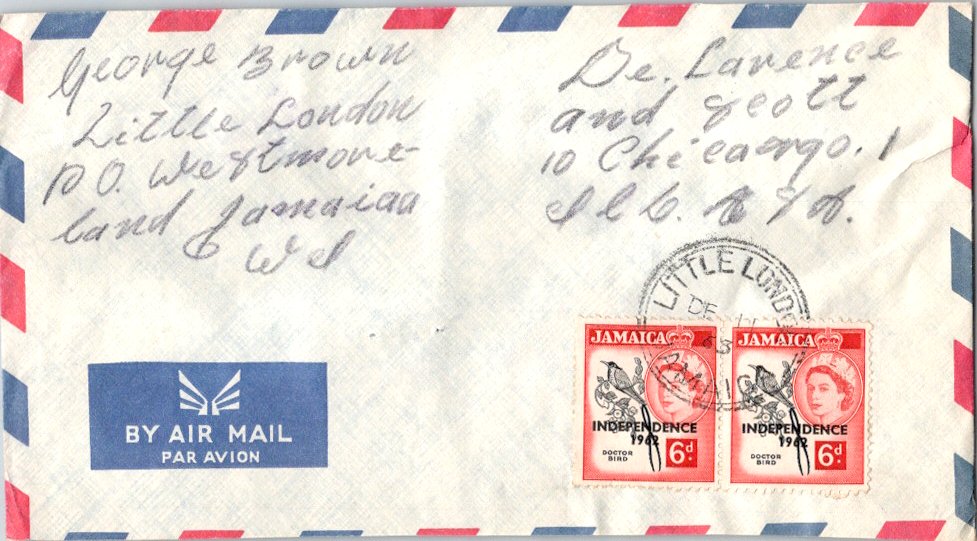 George Brown
Little London
P.O. Westmore-
land Jamaicaa
W I
De. Larence
and Scott
10 Chicaorgo. 1
Ill. A S A.
LITTLE LONDON
DE 11
63
JAMAICA
JAMAICA
INDEPENDENCE
1962
DOCTOR
BIRD
6d.
JAMAICA
INDEPENDENCE
1962
DOCTOR
BIRD
6d.
BY AIR MAIL
PAR AVION